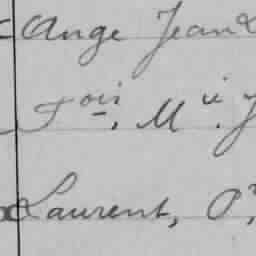 Ange Jean
Fois, Mie J
Laurent, P